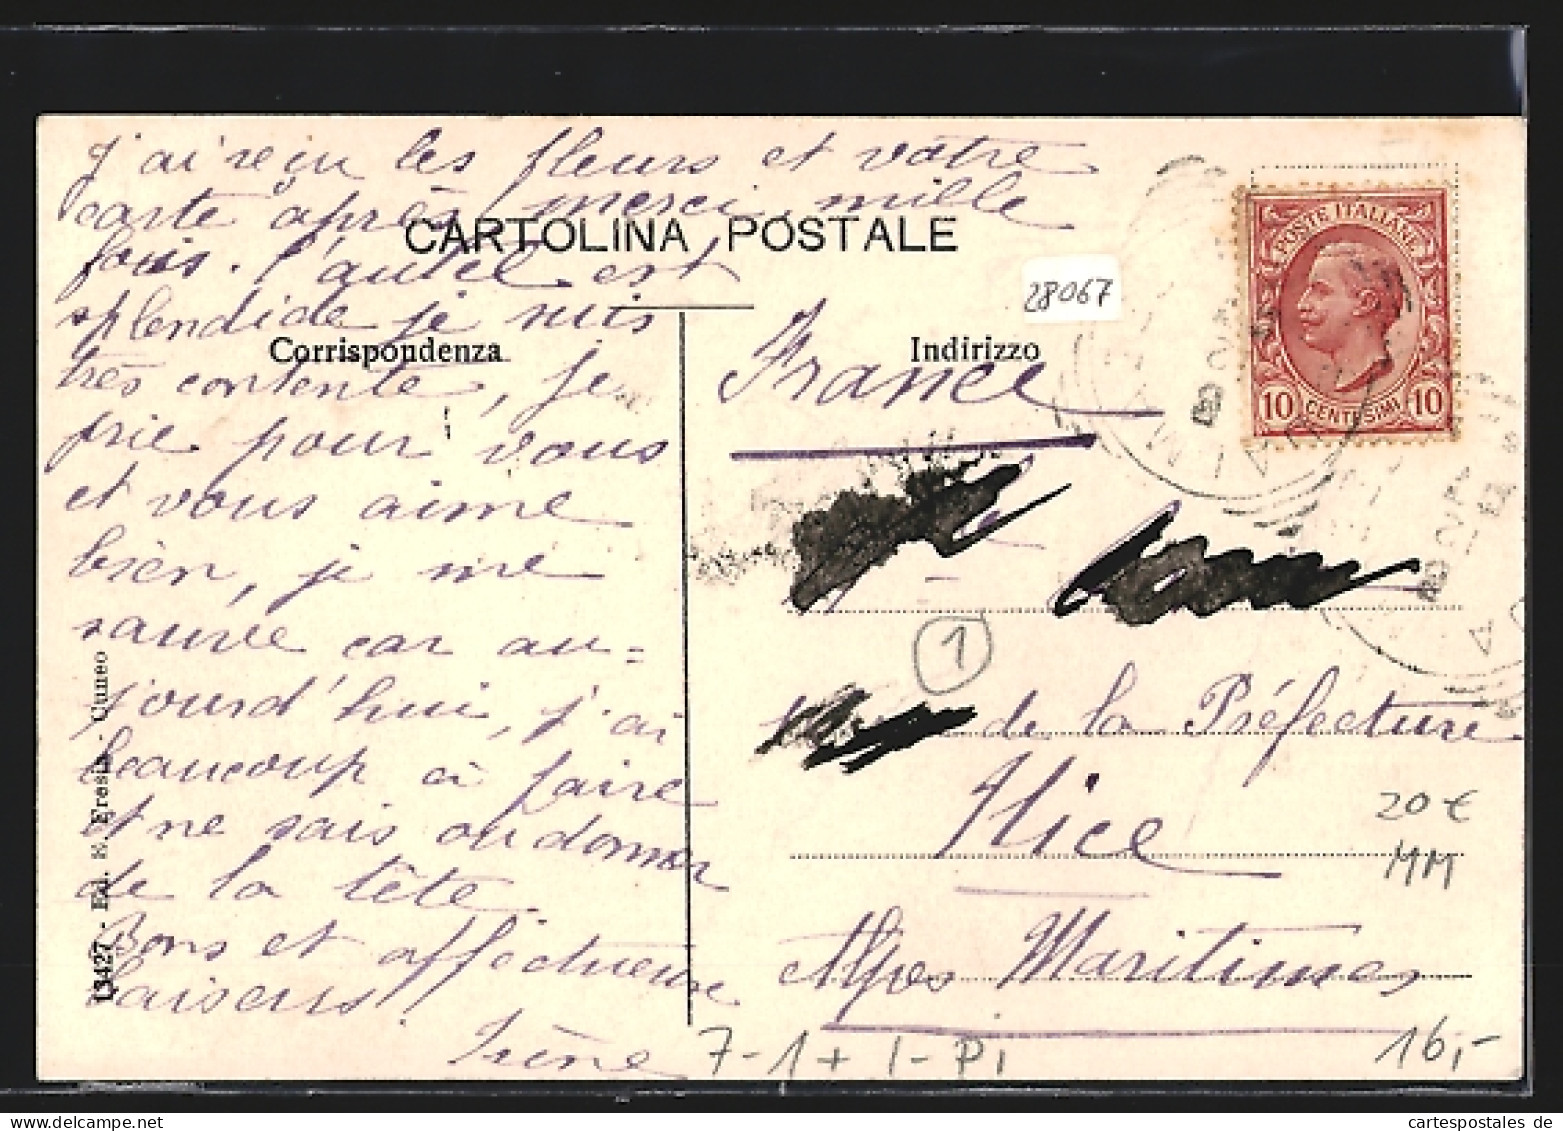 J'ai reçu les fleurs et votre
carte après merci mille
fois. l'autel est
splendide je suis
très contente, je
prie pour vous
et vous aime
bien, je me
sauve car au=
jourd'hui, j'ai
beaucoup à faire
et ne sais ou donner
de la tête.
Bons et affectueux
baisers!
Irène
CARTOLINA POSTALE
Corrispondenza
Indirizzo
28067
POSTE ITALIANE
10 CENTESIMI 10
France
1
de la Préfecture
Nice
Alpes Maritimes
20 €
MM
16,-
7-1+1-Pi
13427 - Ed. E. Fresia - Cuneo
cartespostales de